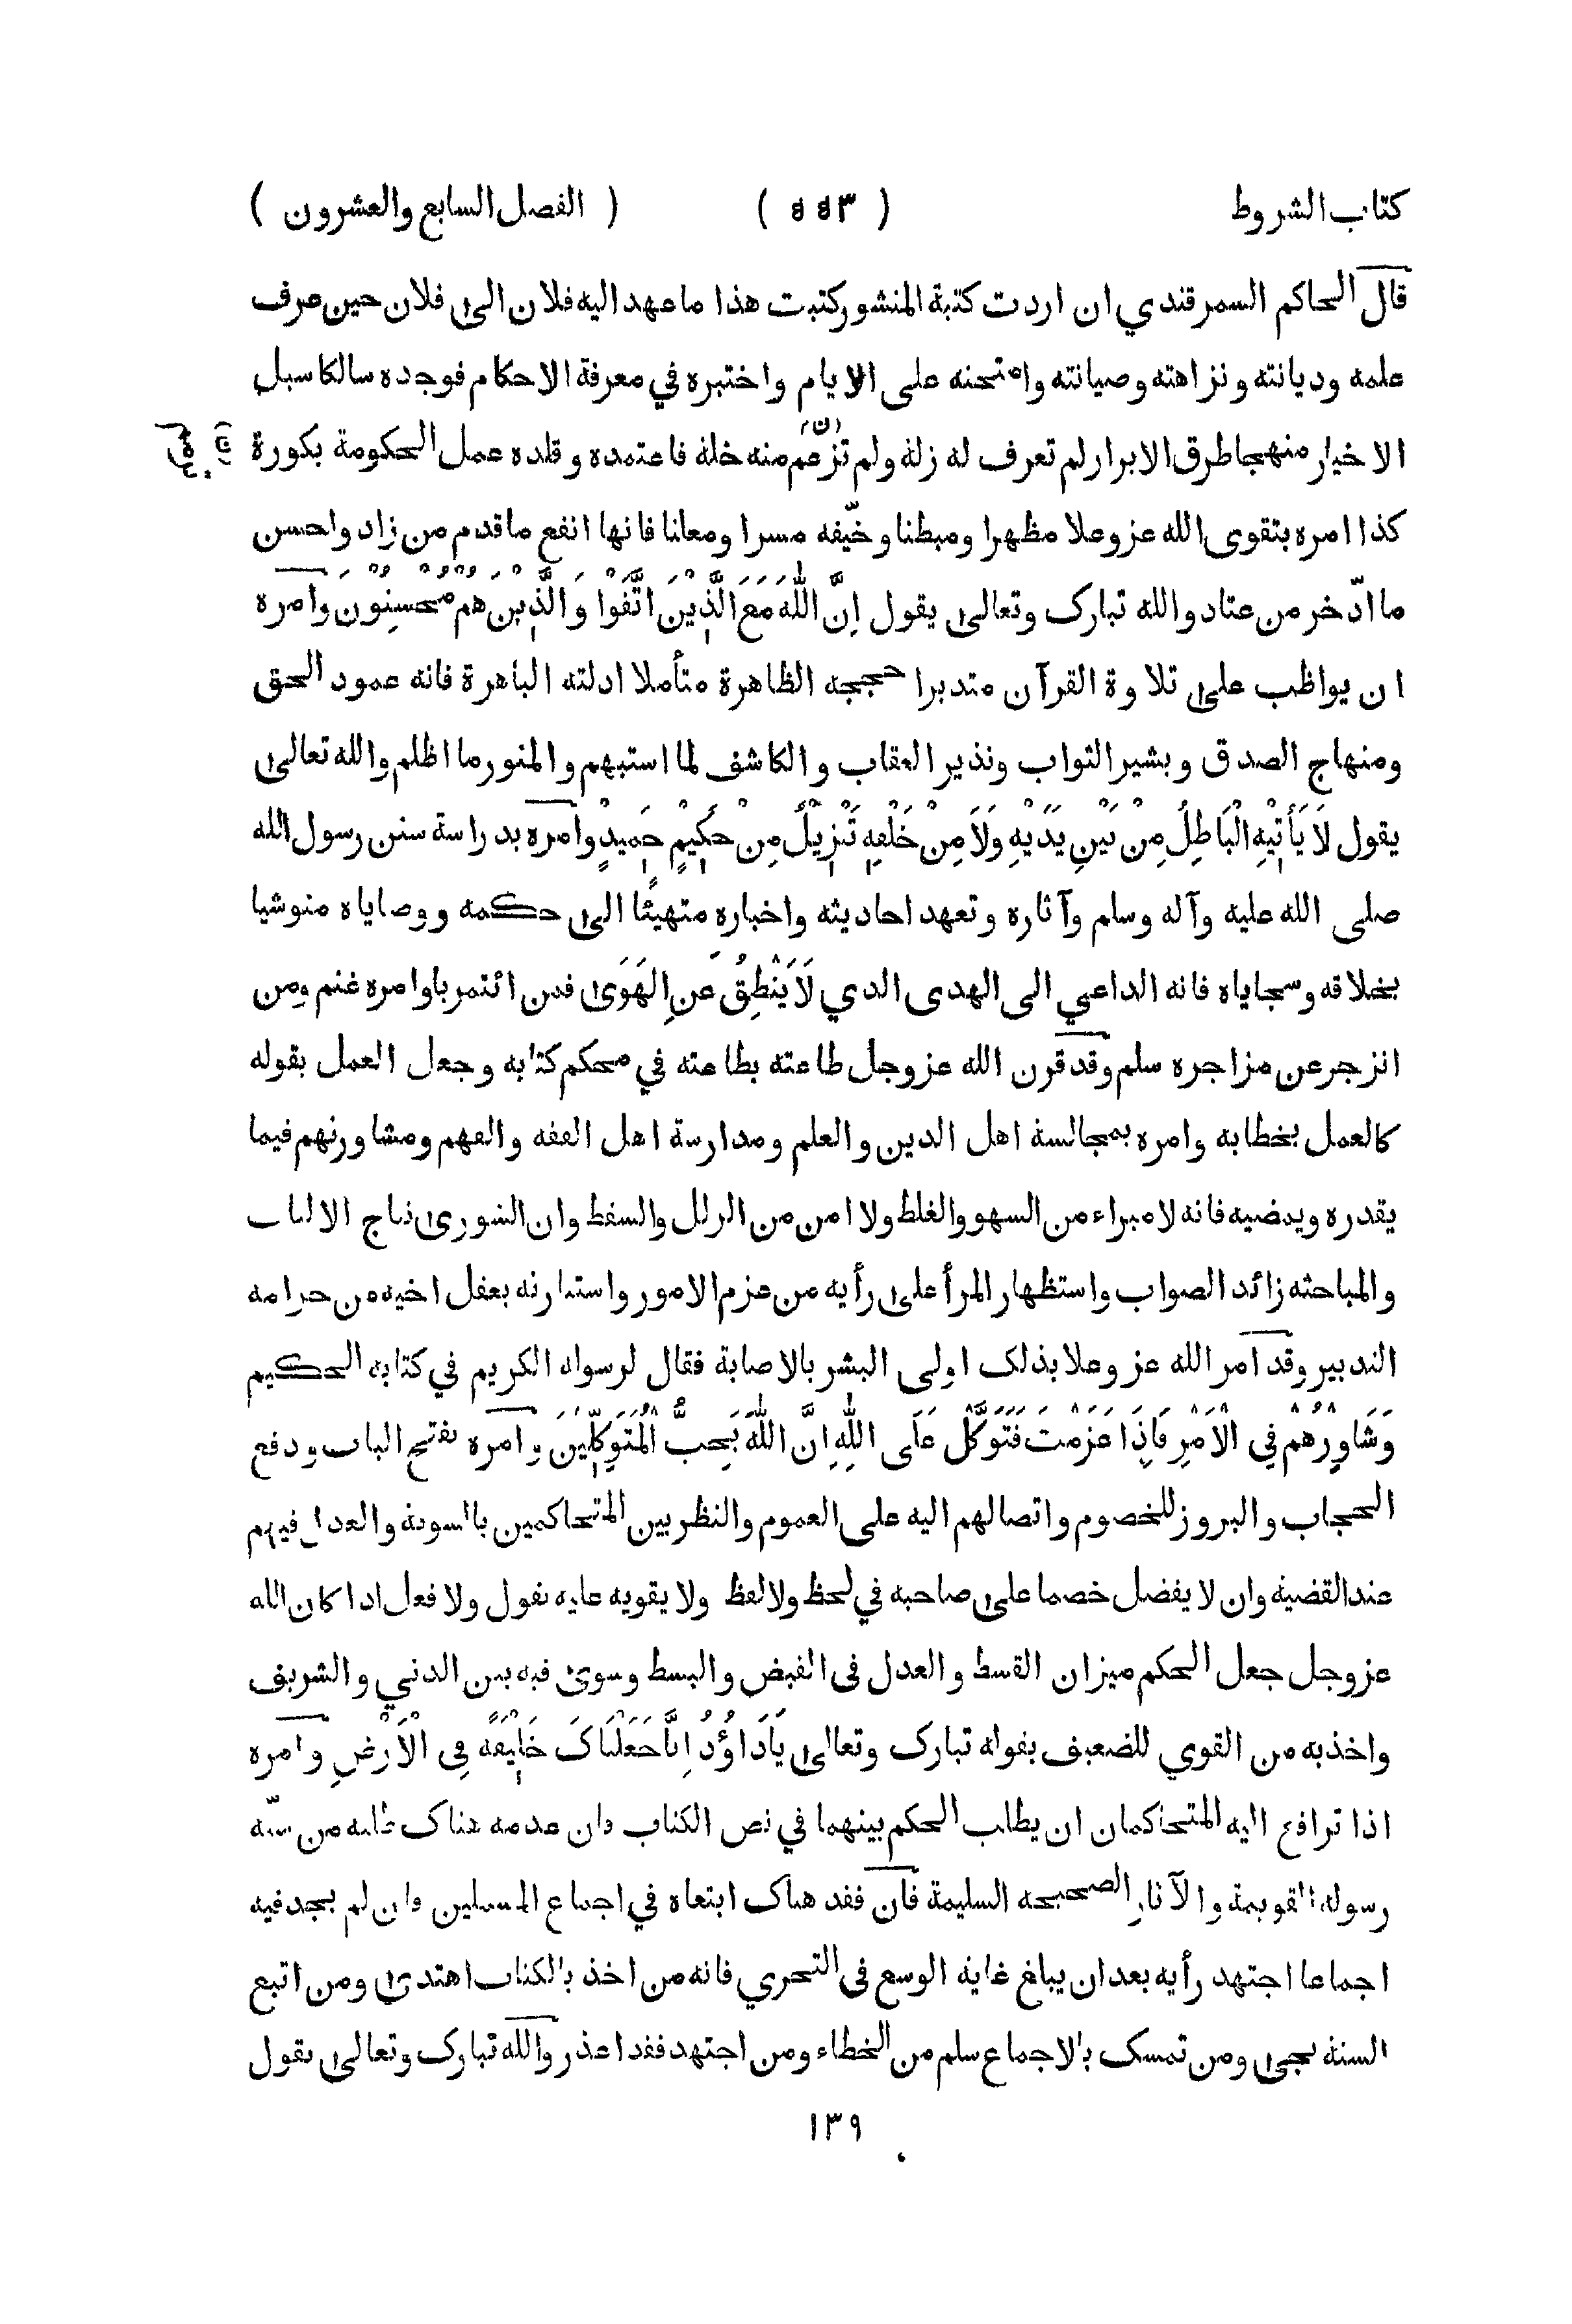 كتاب الشروط ( ٥٥٣ ) ( الفصل السابع والعشرون )
قال الحاكم السمرقندي ان اردت كتبة المنشور كتبت هذا ما عهد اليه فلان الى فلان حين عرف
علمه وديانته ونزاهته وصيانته وامتحنه على الايام واختبره في معرفة الاحكام فوجده سالكا سبل
الاخيار منهجا طرق الابرار لم تعرف له زلة ولم تزعم (ن) منه خلة فاعتمده وقلده عمل الحكومة بكورة
كذا امره بتقوى الله عز وعلا مظهرا ومبطنا وخيّفه مسرا ومعانا فانها انفع ما قدم من زاد واحسن
ما ادّخر من عتاد والله تبارك وتعالى يقول اِنَّ اللّٰهَ مَعَ الَّذِيْنَ اتَّقَوْا وَالَّذِيْنَ هُمْ مُحْسِنُوْنَ وامره
ان يواظب على تلاوة القرآن متدبرا حججه الظاهرة متأملا ادلته الباهرة فانه عمود الحق
ومنهاج الصدق وبشير الثواب ونذير العقاب والكاشف لما استبهم والمنور ما اظلم والله تعالى
يقول لَا يَأْتِيْهِ الْبَاطِلُ مِنْ بَيْنِ يَدَيْهِ وَلَا مِنْ خَلْفِهِ تَنْزِيْلٌ مِنْ حَكِيْمٍ حَمِيدٍ وامره بدراسة سنن رسول الله
صلى الله عليه وآله وسلم وآثاره وتعهد احاديثه واخباره متهيئًا الى حكمه ووصاياه منوشيا
بخلاقه وسجاياه فانه الداعي الى الهدى الدي لَا يَنْطِقُ عَنِ الهَوَى فمن ائتمر باوامره غنم ومن
انزجر عن مزاجره سلم وقد قرن الله عز وجل طاعته بطاعته في محكم كتابه وجعل العمل بقوله
كالعمل بخطابه وامره بمجالسة اهل الدين والعلم ومدارسة اهل الفقه والفهم ومشاورتهم فيما
يقدره ويمضيه فانه لا مبراء من السهو والغلط ولا امن من الزلل والسقط وان الشورى نتاج الالباب
والمباحثه زائد الصواب واستظهار المرأ على رأيه من عزم الامور واستنارته بعقل اخيه من حرامه
التدبير وقد امر الله عز وعلا بذلك اولى البشر بالاصابة فقال لرسوله الكريم في كتابه الحكيم
وَشَاوِرْهُمْ فِي الْاَمْرِ فَاِذَا عَزَمْتَ فَتَوَكَّلْ عَلَى اللّٰهِ اِنَّ اللّٰهَ يُحِبُّ الْمُتَوَكِّلِيْنَ وامره بفتح الباب ودفع
الحجاب والبروز للخصوم واتصالهم اليه على العموم والنظر بين المتحاكمين بالسوية والعدل فيهم
عند القضية وان لا يفضل خصما على صاحبه في لحظ ولا لفظ ولا يقويه عليه بقول ولا فعل اذا كان الله
عز وجل جعل الحكم ميزان القسط والعدل فى القبض والبسط وسوى فيه بين الدني والشريف
واخذ به من القوي للضعيف بقوله تبارك وتعالى يَادَاوُٗدُ اِنَّا جَعَلْنَاكَ خَلِيْفَةً فِى الْاَرْضِ وامره
اذا ترافع اليه المتحاكمان ان يطلب الحكم بينهما في نص الكتاب وان عدمه هناك طلبه من سنّه
رسوله القويمة والآثار الصحيحه السليمة فان فقد هناك ابتغاه في اجماع المسلمين وان لم يجد فيه
اجماعا اجتهد رأيه بعد ان يبلغ غاية الوسع فى التحري فانه من اخذ بالكتاب اهتدى ومن اتبع
السنة نجى ومن تمسك بالاجماع سلم من الخطاء ومن اجتهد فقد اعذر والله تبارك وتعالى يقول
١٣٩